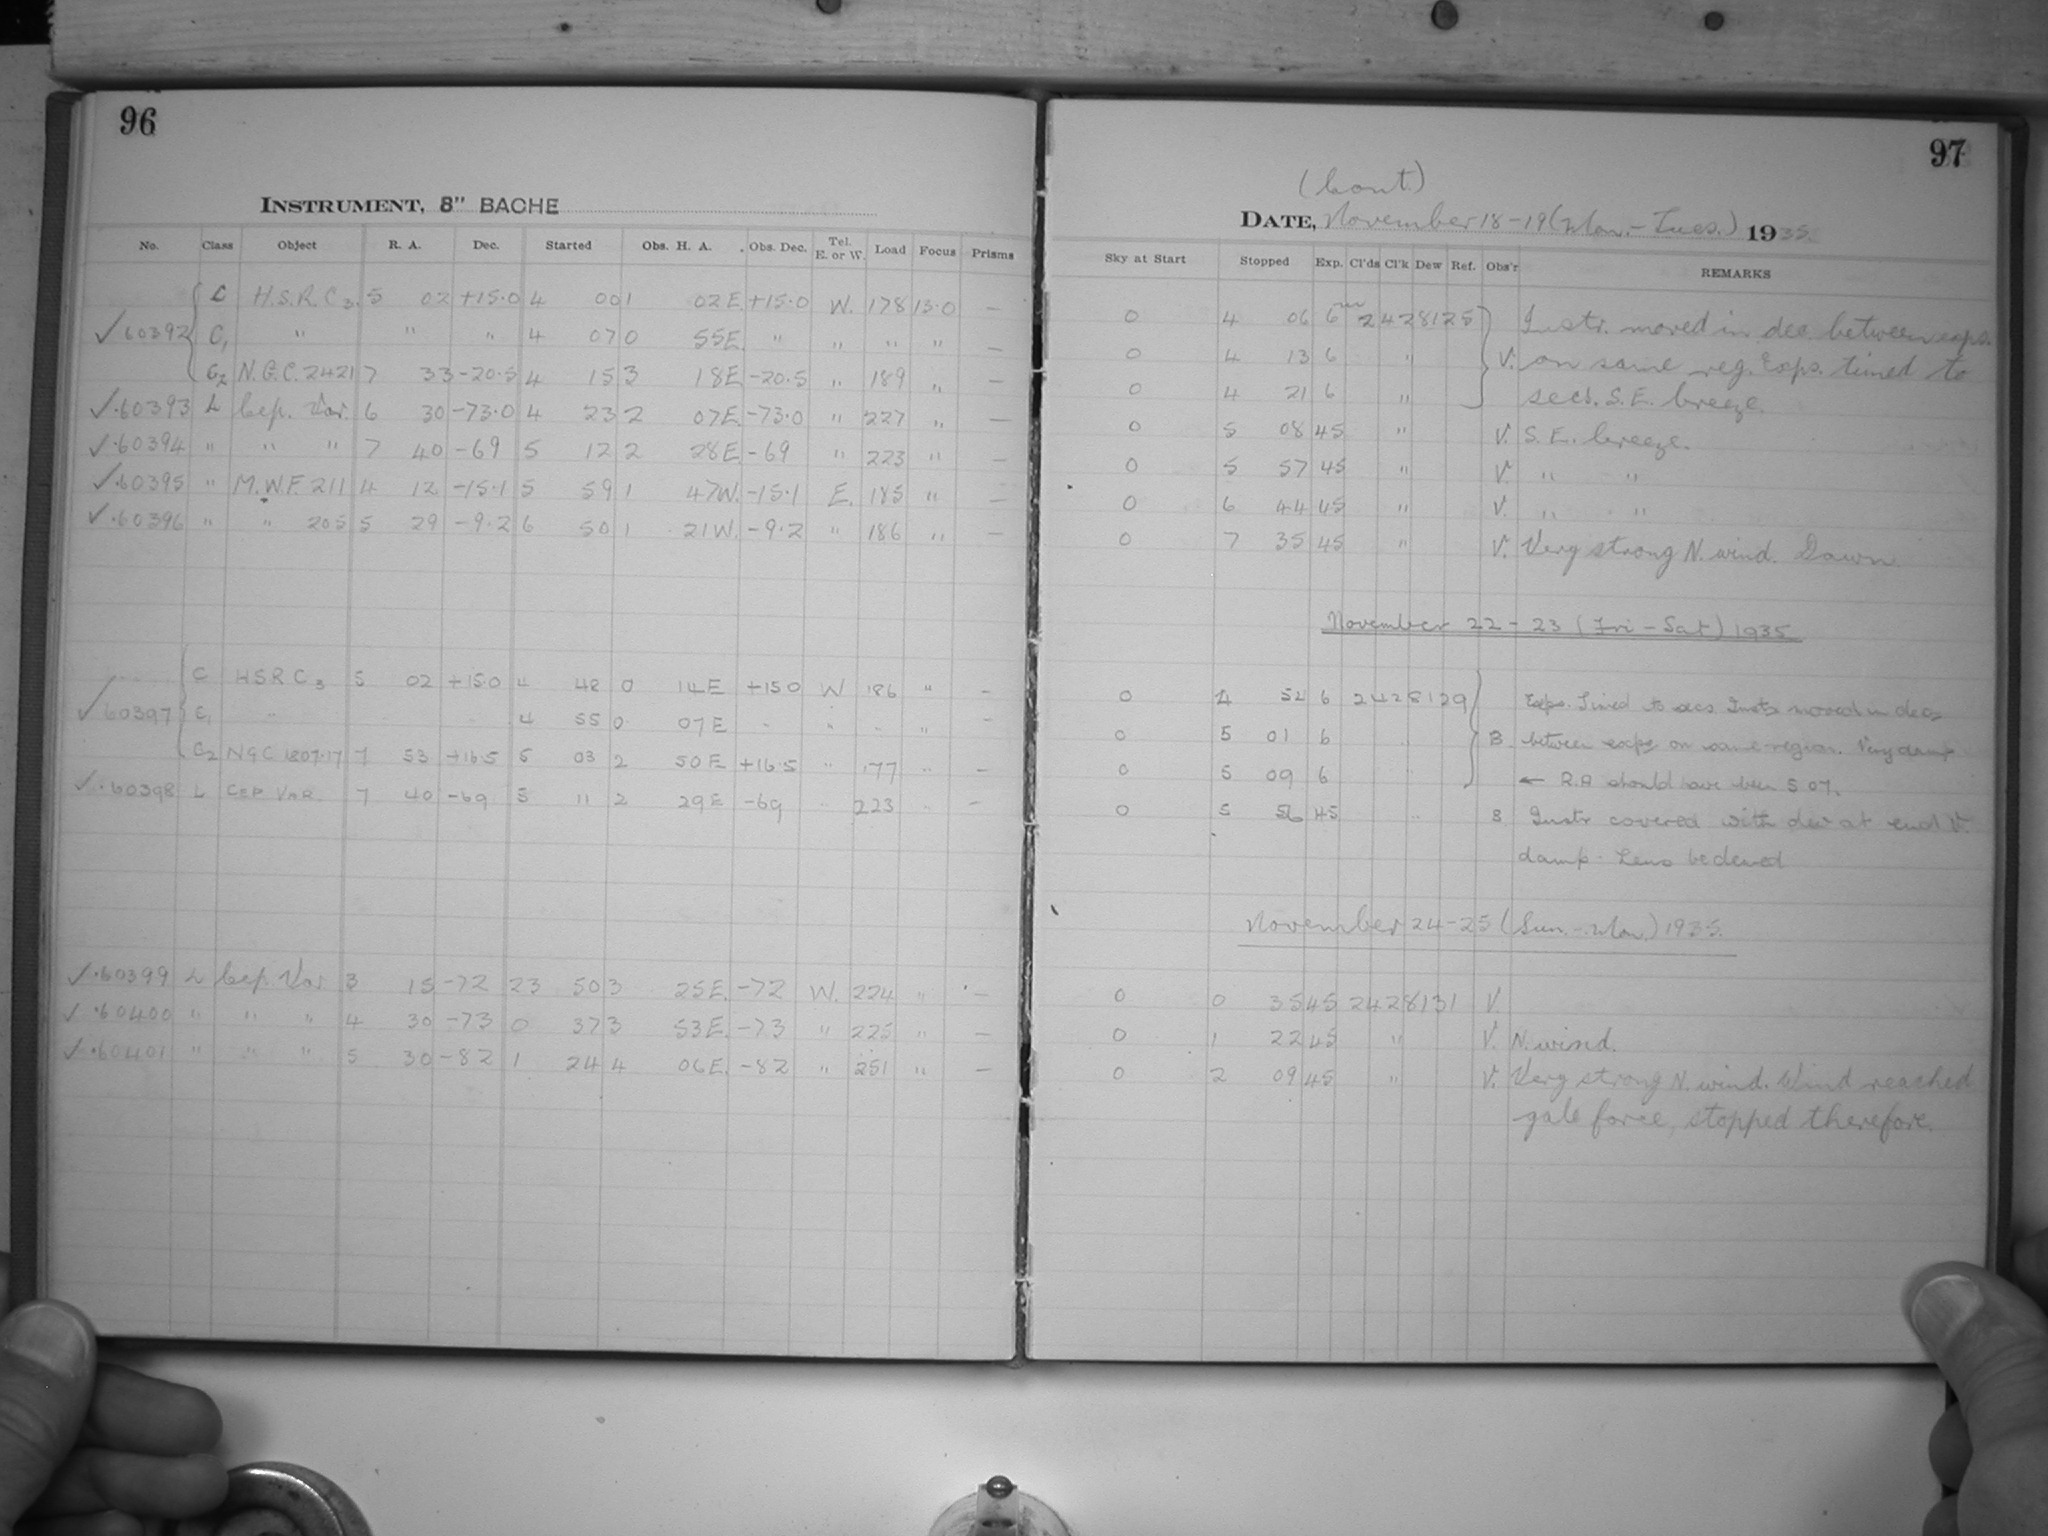 96
INSTRUMENT, 8" BACHE
No. Class Object R. A. Dec. Started Obs. H. A. Obs. Dec. Tel. E. or W. Load Focus Prisms
C H.S.R.C3. 5 02 +15.0 4 00 1 02E +15.0 W. 178 13.0 —
✓ 60392 C1 " " " 4 07 0 55E " " " " —
C2 N.G.C. 2421 7 33 -20.5 4 15 3 18E -20.5 " 189 " —
✓ 60393 L Cep. Var. 6 30 -73.0 4 23 2 07E. -73.0 " 227 " —
✓ 60394 " " " 7 40 -69 5 12 2 28E -69 " 223 " —
✓ 60395 " M.W.F. 211 4 12 -15.1 5 59 1 47W. -15.1 E. 185 " —
✓ 60396 " " 205 5 29 -9.2 6 50 1 21W. -9.2 " 186 " —
C HSRC3 5 02 +15.0 4 48 0 14E +15.0 W 186 " —
✓ 60397 C1 " 4 55 0 07E " " " " —
C2 NGC 1807.17 7 53 +16.5 5 03 2 50E +16.5 " 177 " —
✓ 60398 L CEP VAR. 7 40 -69 5 11 2 29E -69 " 223 " —
✓ 60399 L Cep. Var 3 15 -72 23 50 3 25E. -72 W. 224 " —
✓ 60400 " " " 4 30 -73 0 37 3 53E. -73 " 225 " —
✓ 60401 " " " 5 30 -82 1 24 4 06E. -82 " 251 " —
97
(Cont.)
DATE, November 18-19 (Mon.-Tues.) 1935.
Sky at Start Stopped Exp. Cl'ds Cl'k Dew Ref. Obs'r REMARKS
0 4 06 6m 2428125 Instr. moved in dec between exps.
0 4 13 6 " V. on same reg. Exps. timed to
0 4 21 6 " secs. S.E. breeze.
0 5 08 45 " V. S.E. breeze.
0 5 57 45 " V. " "
0 6 44 45 " V. " "
0 7 35 45 " V. Very strong N. wind. Dawn
November 22-23 (Fri-Sat) 1935
0 4 54 6 2428129 Exps. Timed to secs Instr moved in dec
0 5 01 6 " B between exps on same region. Very damp
0 5 09 6 " ← R.A should have been 5 07.
0 5 56 45 " B Instr covered with dew at end V.
damp - Lens bedewed
November 24-25 (Sun.-Mon.) 1935.
0 0 35 45 2428131 V.
0 1 22 45 " V. N. wind.
0 2 09 45 " V. Very strong N. wind. Wind reached
gale force, stopped therefore.